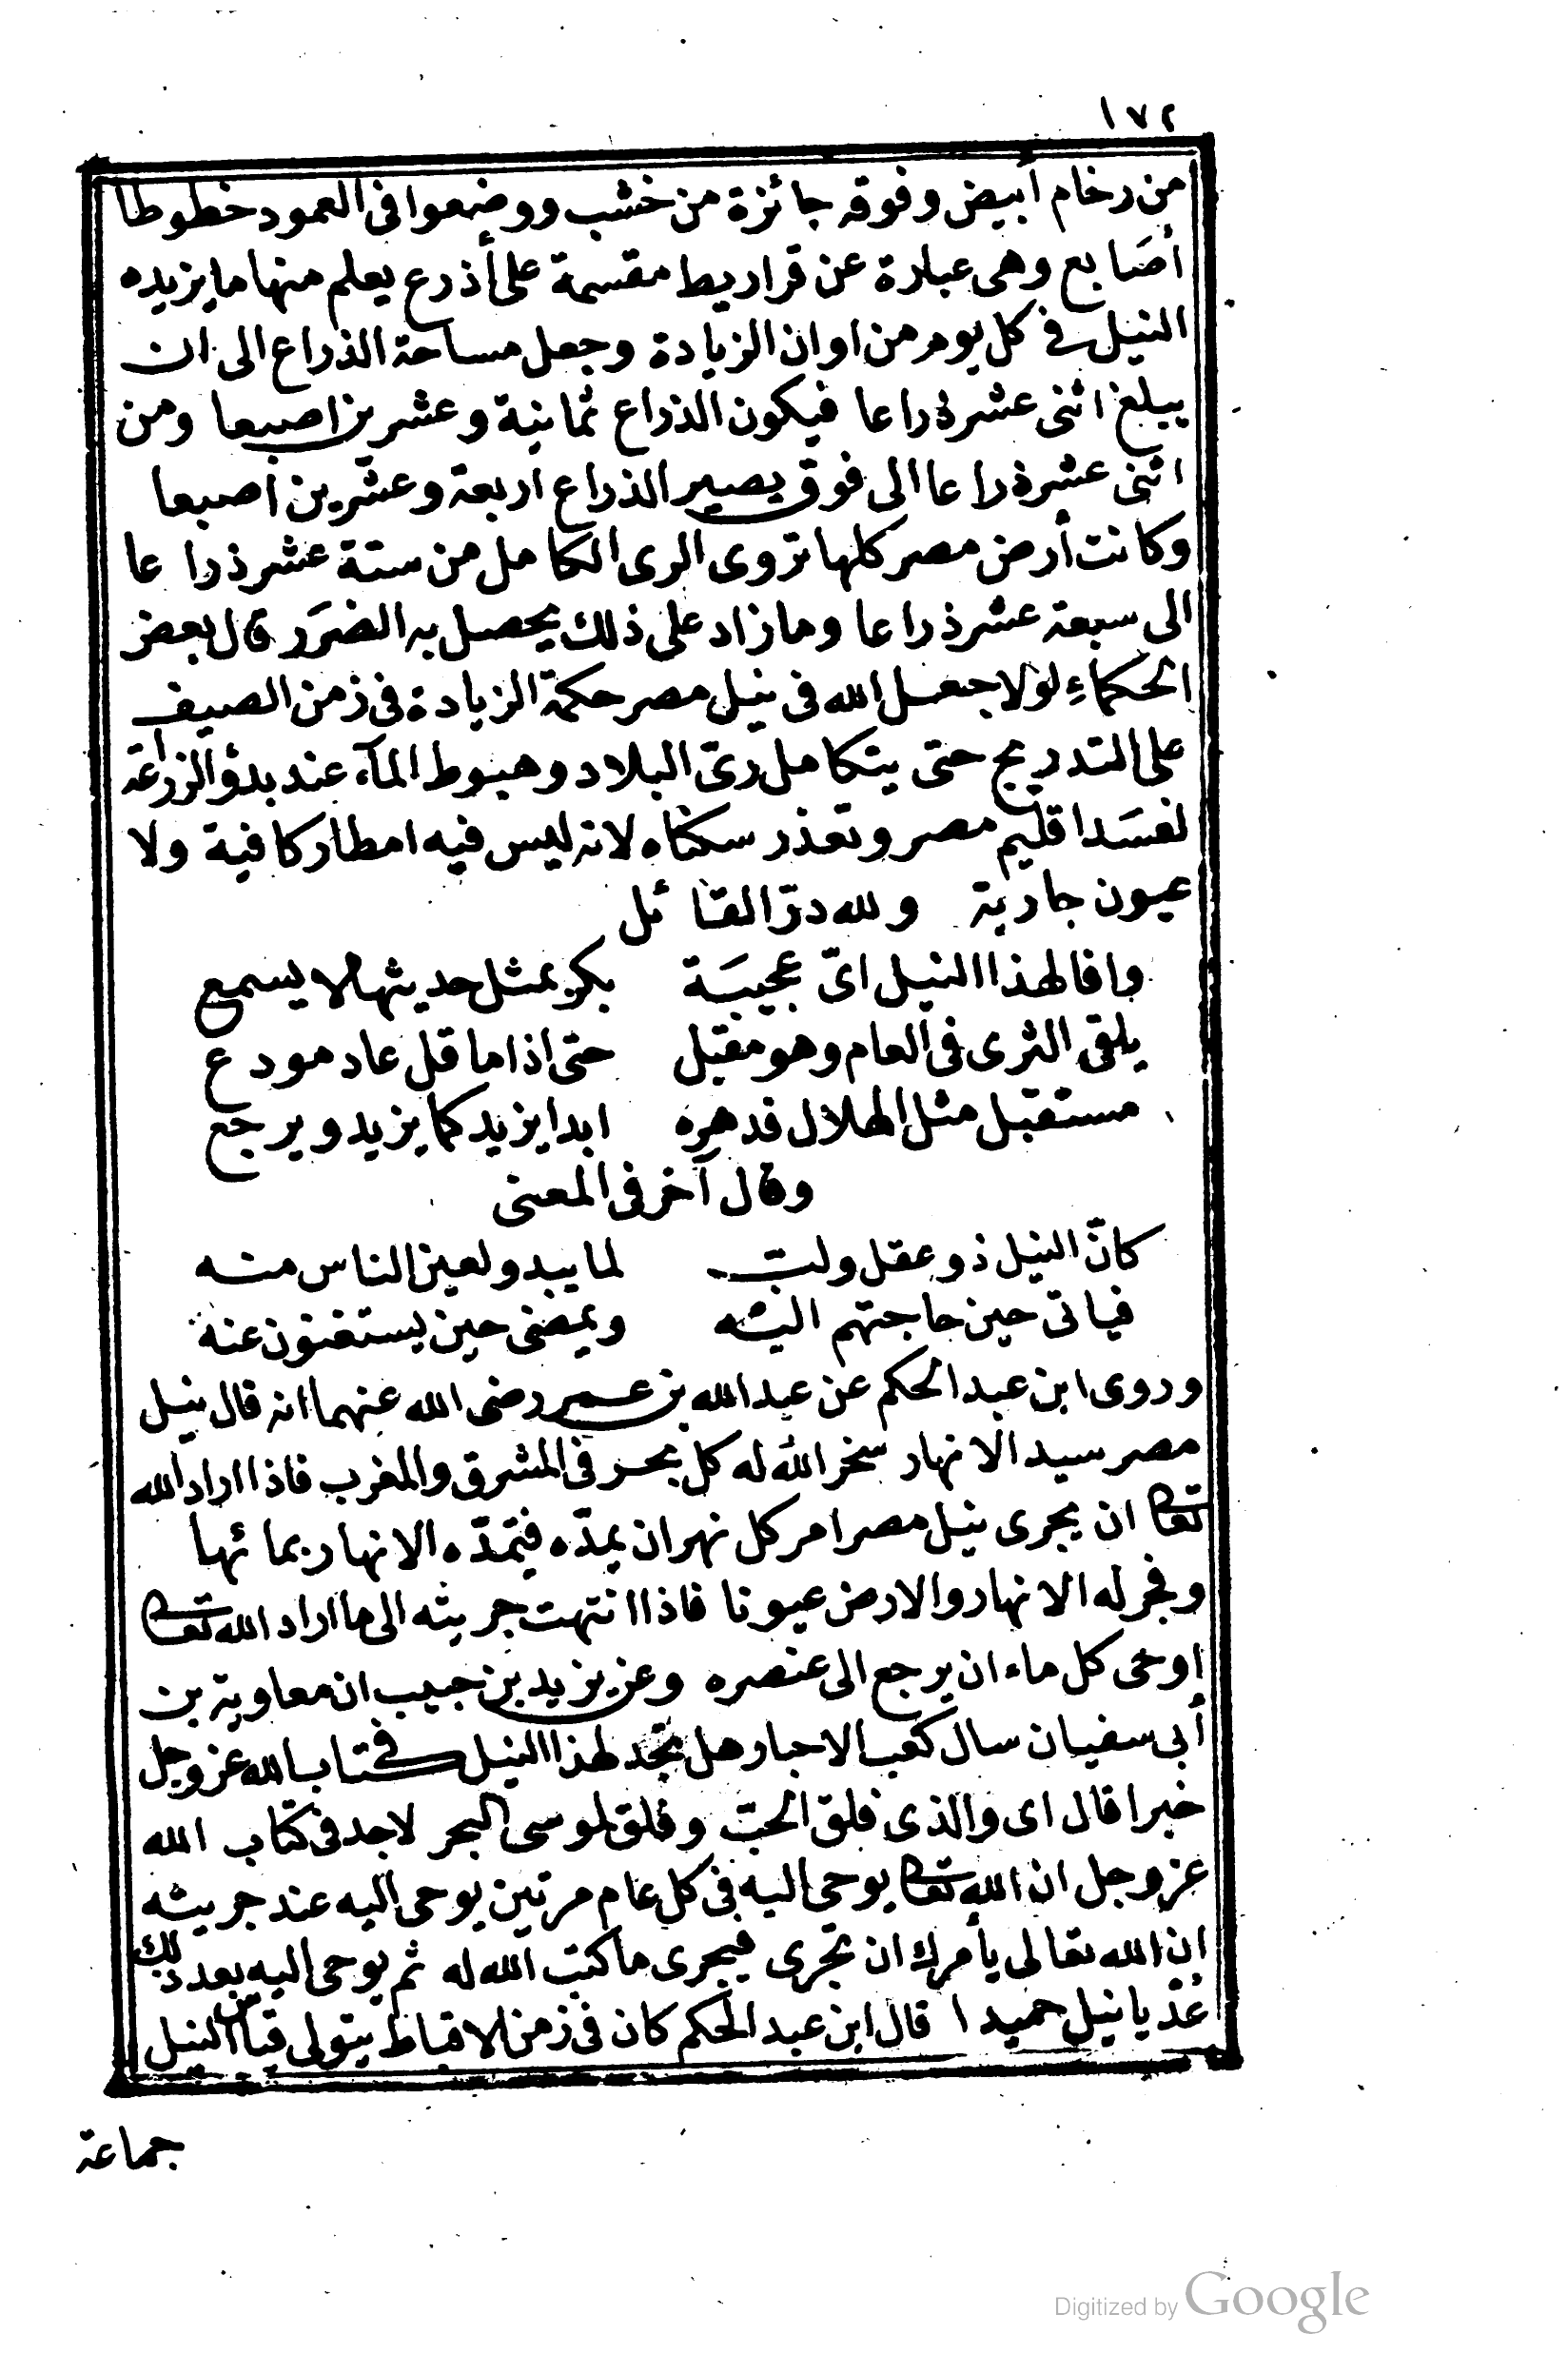 ١٧٢
من رخام أبيض وفوقه جائزة من خشب ووضعوا فى العمود خطوطا
أصَابع وهى عبارة عن قراريط مقسمة على أذرع يعلم منها ما يزيده
النيل فى كل يوم من اوان الزيادة وجعل مساحة الذراع الى ان
يبلغ اثنى عشر ذراعا فيكون الذراع ثمانية وعشرين اصبعا ومن
اثنى عشر ذراعا الى فوق يصير الذراع اربعة وعشرين اصبعا
وكانت أرض مصر كلها تروى الرى الكامل من ستة عشر ذراعا
الى سبعة عشر ذراعا وما زاد على ذلك يحصل به الضَرَر قال بعض
الحكماءِ لولا جعل الله فى نيل مصر حكمة الزيادة فى زمن الصيف
على التدريج حتى يتكامل رىّ البلاد وهبوط المآء عند بدؤ الزراعة
لفسَد اقليم مصر وتعذر سكناه لانه ليس فيه امطار كافية ولا
عيون جارية ولله درّ القائل
وافا لهذا النيل اىّ عجيبَة بكر بمثل حديثها لا يسمع
يلقى الثرى فى العام وهو مقبل حتى اذا ما قل عاد مودع
مستقبل مثل الهلال فدهره ابدا يزيد كما يزيد ويرجع
وقال آخر فى المعنى
كانّ النيل ذو عقل ولبّ لما يبدو لعين الناس منه
فياتى حين حاجتهم اليه ويمضى حين يستغنون عنه
وروى ابن عبد الحكم عن عبد الله بن عمر رضى الله عنهما انه قال نيل
مصر سيد الانهار سخر الله له كل بحر فى المشرق والمغرب فاذا اراد الله
تعا ان يجرى نيل مصر امر كل نهر ان يمدّه فتمدّه الانهار بمائها
وفجر له الانهار والارض عيونا فاذا انتهت جريته الى ما اراد الله تعا
اوحى كل ماء ان يرجع الى عنصره وعن يزيد بن حبيب ان معاوية بن
أبى سفيان سال كعب الاحبار هل تجد لهذا النيل فى كتاب الله عز وجل
خبرا قال اى والذى فلق الحبّ وفلق لموسى البحر لاجد فى كتاب الله
عز وجل ان الله تعا يوحى اليه فى كل عام مرتين يوحى اليه عند جريته
ان الله تعالى يأمرك ان تجرى فيجرى ما كتب الله له ثم يوحى اليه بعد ذلك
غدّ يا نيل حميدا قال ابن عبد الحكم كان فى زمن الاقباط يتولى قياس النيل
جماعة
Digitized by Google